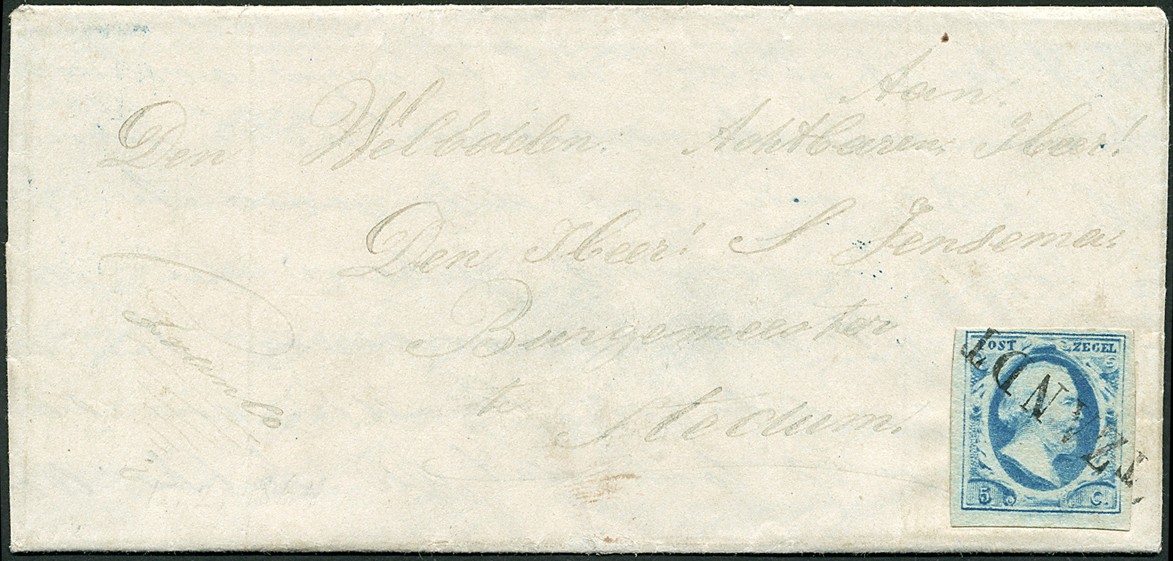 Aan.
Den WelEdelen. Achtbaren Heer!
Den Heer! S Jensema.
Burgemeester
te
Stedum.
Franko
POST ZEGEL
5 C.